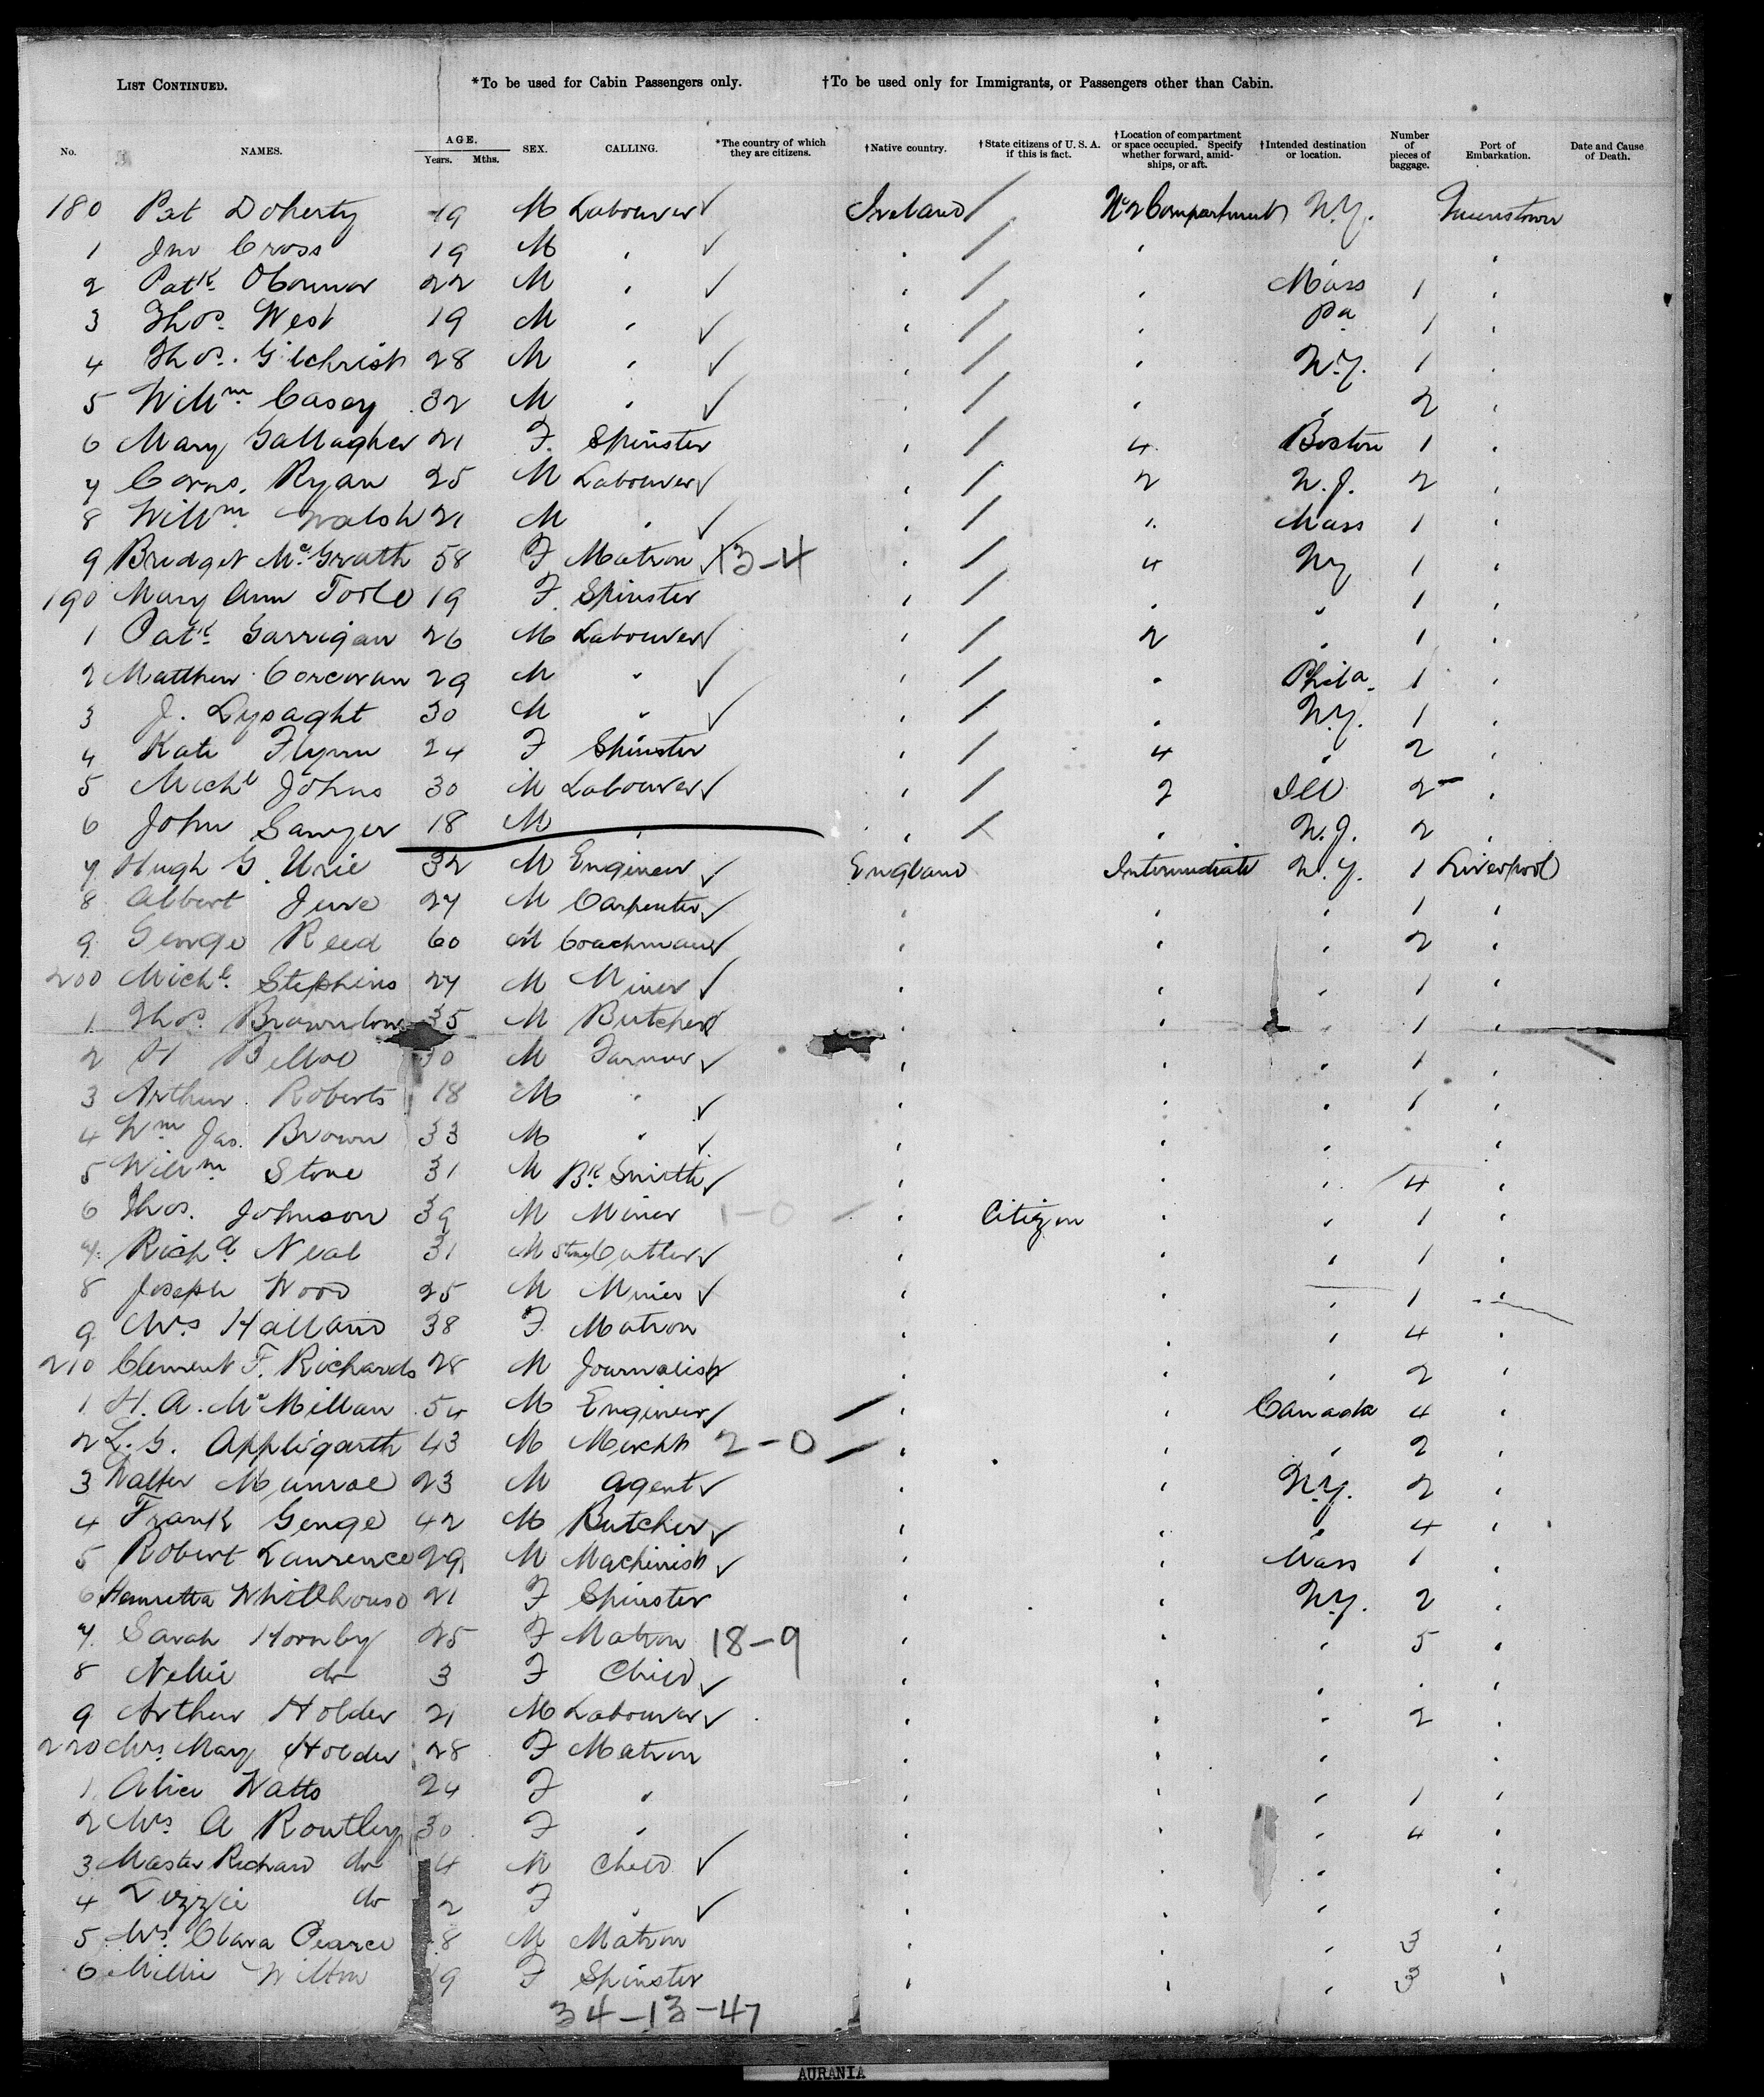 LIST CONTINUED. *To be used for Cabin Passengers only. †To be used only for Immigrants, or Passengers other than Cabin.
No. NAMES. AGE. Years. Mths. SEX. CALLING. *The country of which they are citizens. †Native country. †State citizens of U. S. A. if this is fact. †Location of compartment or space occupied. Specify whether forward, amid-ships, or aft. †Intended destination or location. Number of pieces of baggage. Port of Embarkation. Date and Cause of Death.
180 Pat Doherty 19 M Labourer ✓ Ireland / No 2 Compartment N.Y. Queenstown
1 Jno Cross 19 M " ✓ " / " " "
2 Patk. OConnor 22 M " ✓ " / " Mass 1 "
3 Thos. West 19 M " ✓ " / " Pa 1 "
4 Thos. Gilchrist 28 M " ✓ " / " N.Y. 1 "
5 Willm. Casey 32 M " ✓ " / " " 2 "
6 Mary Gallagher 21 F. Spinster " / 4 Boston 1 "
7 Corns. Ryan 25 M Labourer ✓ " / 2 N.J. 2 "
8 Willm. Walsh 21 M " ✓ " / " Mass 1 "
9 Bridget McGrath 58 F Matron ✓ 13-4 " / 4 Ny 1 "
190 Mary Ann Toole 19 F. Spinster " / " " 1 "
1 Patk. Garrigan 26 M Labourer ✓ " / 2 " 1 "
2 Matthew Corcoran 29 M " ✓ " / " Phila. 1 "
3 J. Lysaght 30 M " ✓ " / " N.Y. 1 "
4 Kate Flynn 24 F Spinster " / 4 " 2 "
5 Michl Johns 30 M Labourer ✓ " / 2 Ill 2 "
6 John Sawyer 18 M " " / " N.J. 2 "
7 Hugh G. Urie 32 M Engineer ✓ England Intermediate N.Y. 1 Liverpool
8 Albert 27 M Carpenter ✓ " " " 1 "
9 George Reed 60 M Coachman ✓ " " " 2 "
200 Michl. Stephens 27 M Miner ✓ " " " 1 "
1 Thos. Brownlow 35 M Butcher ✓ " " " 1 "
2 H 30 M Farmer ✓ " " " 1 "
3 Arthur Roberts 18 M " ✓ " " " 1 "
4 Wm Jas. Brown 33 M " ✓ " " " "
5 Willm Stone 31 M Bk. Smith ✓ " " " 4 "
6 Thos. Johnson 39 M Miner 1-0 " Citizen " " 1 "
7 Richd Neal 31 M Stone Cutter ✓ " " " 1 "
8 Joseph Wood 25 M Miner ✓ " " " 1 "
9 Mrs Halland 38 F Matron " " " 4 "
210 Clement F. Richards 28 M Journalist ✓ " " " 2 "
1 H. A. McMillan 54 M Engineer ✓ / " " Canada 4 "
2 L. G. Appligarth 43 M Mercht 2-0 / " " " 2 "
3 Walter Munroe 23 M Agent ✓ " " N.Y. 2 "
4 Frank Genge 42 M Butcher ✓ " " " 4 "
5 Robert Laurence 29 M Machinist ✓ " " Mass 1 "
6 Henrietta Whitehouse 21 F Spinster " " N.Y. 2 "
7 Sarah Hornby 25 F Matron 18-9 " " " 5 "
8 Nellie do 3 F Child ✓ " " " "
9 Arthur Holder 21 M Labourer ✓ " " " 2 "
220 Mrs Mary Holder 28 F Matron " " " "
1 Alice Watts 24 F " " " " 1 "
2 Mrs A Routley 30 F " " " " 4 "
3 Master Richard do 4 M Child ✓ " " " "
4 Lizzie do 2 F " ✓ " " " "
5 Mrs. Clara Pearce 8 M Matron " " " 3 "
6 Millie Wilton 19 F Spinster " " " 3 "
34-13-47
AURANIA